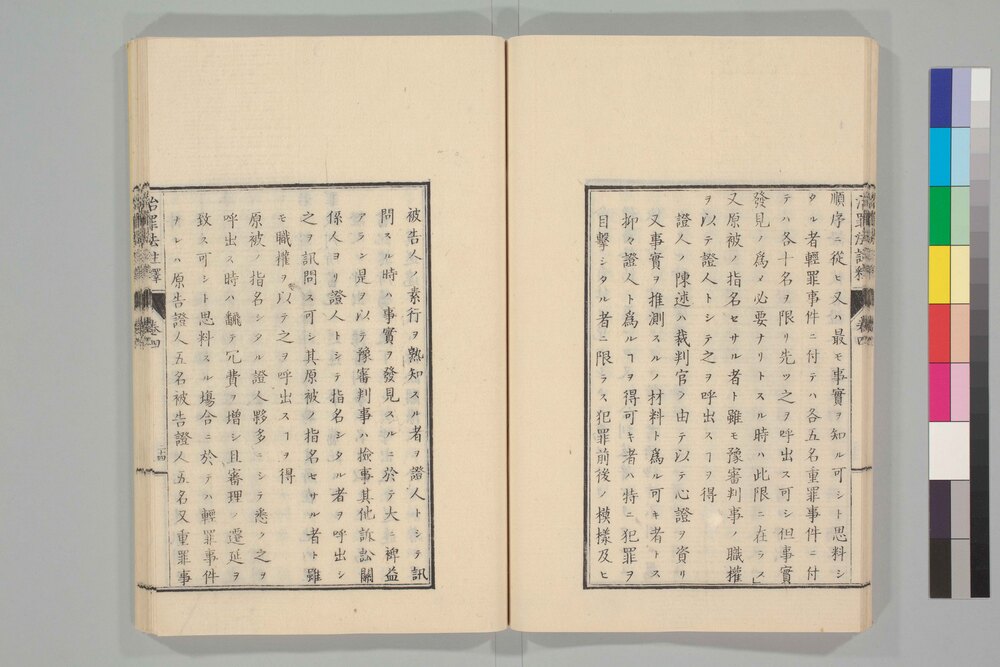 順序ニ從ヒ又ハ最モ事實ヲ知ル可シト思料シ
タル者輕罪事件ニ付テハ各五名重罪事件ニ付
テハ各十名ヲ限リ先ツ之ヲ呼出ス可シ但事實
發見ノ爲メ必要ナリトスル時ハ此限ニ在ラス」
又原被ノ指名セサル者ト雖モ豫審判事ノ職權
ヲ以テ證人トシテ之ヲ呼出スヿヲ得
證人ノ陳述ハ裁判官ノ由テ以テ心證ヲ資リ
又事實ヲ推測スルノ材料ト爲ル可キ者トス
抑々證人ト爲ルヿヲ得可キ者ハ特ニ犯罪ヲ
目擊シタル者ニ限ラス犯罪前後ノ模樣及ヒ
被告人ノ素行ヲ熟知スル者ヲ證人トシテ訊
問スル時ハ事實ヲ發見スルニ於テ大ニ裨益
アラン是ヲ以テ豫審判事ハ撿事其他訴訟關
係人ヨリ證人トシテ指名シタル者ヲ呼出シ
之ヲ訊問ス可シ其原被ノ指名セサル者ト雖
モ職權ヲ以テ之ヲ呼出スヿヲ得
原被ノ指名シタル證人夥多ニシテ悉ク之ヲ
呼出ス時ハ飜テ冗費ヲ增シ且審理ノ遷延ヲ
致ス可シト思料スル塲合ニ於テハ輕罪事件
ナレハ原告證人五名被告證人五名又重罪事
治罪法註釋
卷四